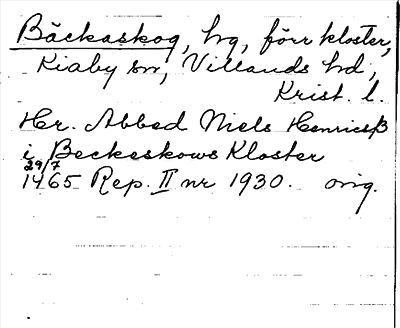 Bäckaskog, hg, förr kloster,
Kiaby sn, Villands hd,
Krist. l.
Her. Abbed Niels Henricsß
i Beckeskows Kloster
29/7
1465 Rep. II nr 1930. orig.